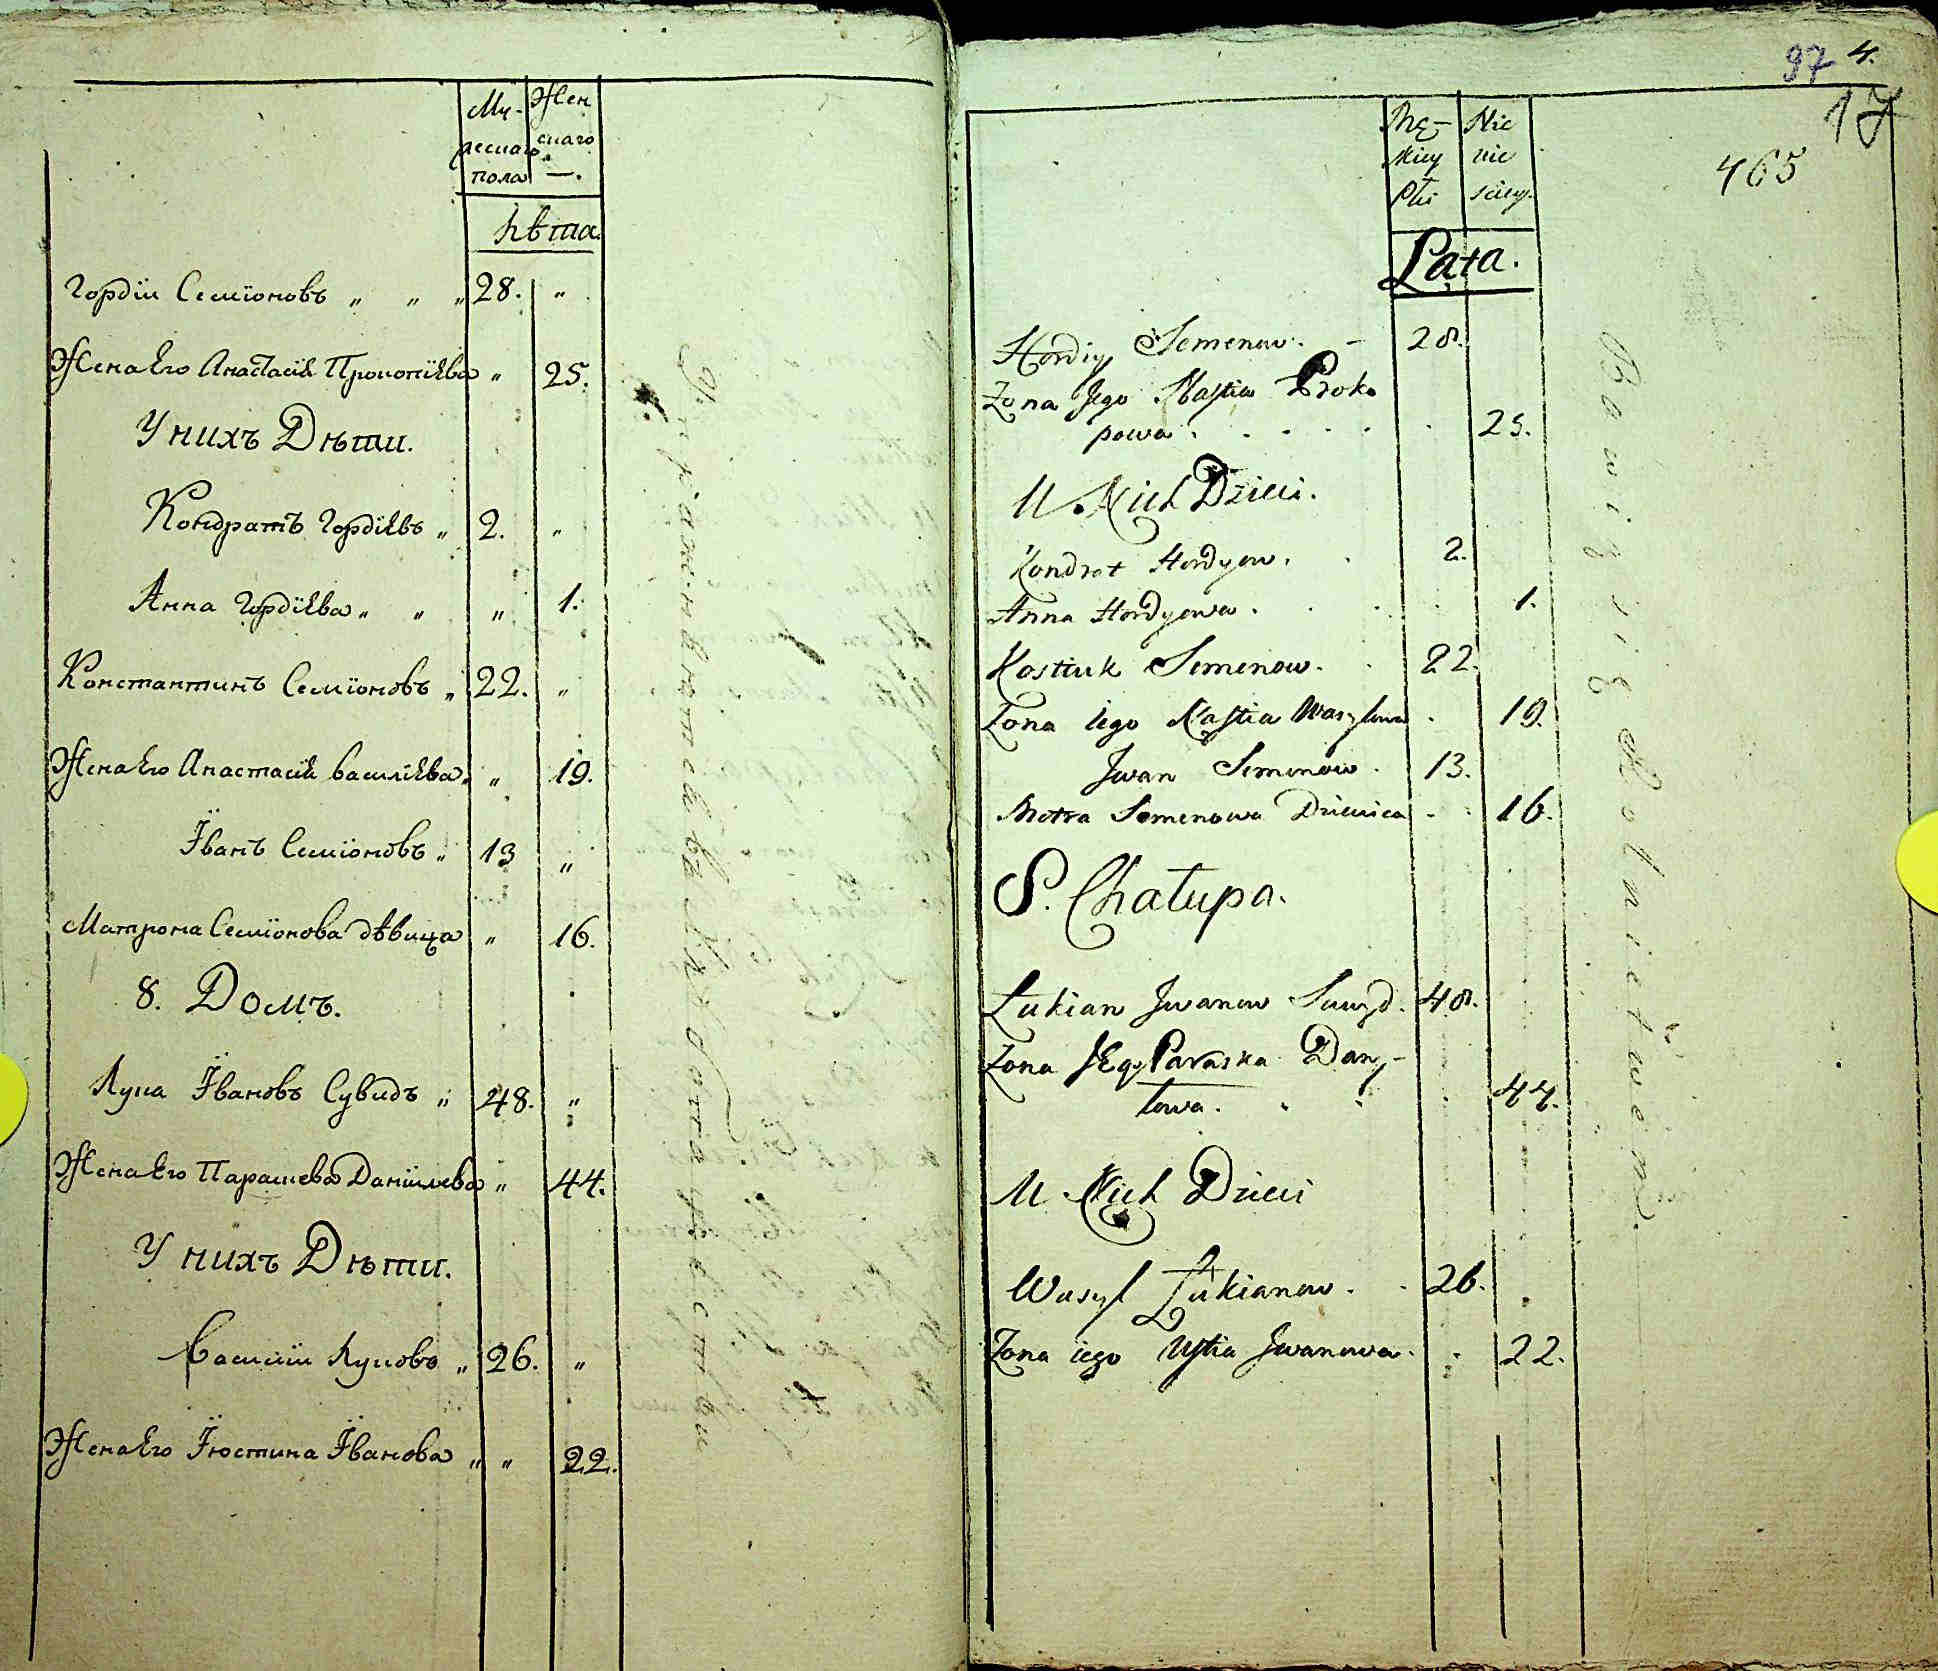 Му- Жен
жескаго скаго
пола —.
Лѣта.
Гордій Семіоновъ „ „ „ 28. „
Жена Его Анастасія Прокопіева „ 25.
У нихъ Дѣти.
Кондратъ Гордіевъ „ 2. „
Анна Гордіева „ „ „ 1.
Константинъ Семіоновъ „ 22. „
Жена Его Анастасія Василіева „ „ 19.
Їванъ Семіоновъ „ 13 „
Матрона Семіонова дѣвица „ 16.
8. Домъ.
Лука Ївановъ Сувидъ „ 48. „
Жена Его Парашева Даніилева „ 44.
У нихъ Дѣти.
Василій Луковъ „ 26. „
Жена Его Їюстина Їванова „ „ 22.
Упражняются въ хлѣбопашествѣ
97 4.
17
465
Mę- Nie
skiey wie
Płci sciey.
Lata.
Hordiy Semenow. - 28.
Zona Jego Nastia Proko
powa. 25.
U Nich Dzieci.
Kondrat Hordyow. 2.
Anna Hordyowa. 1.
Kostiuk Semenow. 22.
Zona iego Nastia Wasylowa 19.
Jwan Semenow. 13.
Motra Semenowa Dziewica 16.
8. Chałupa.
Łukian Jwanow Suwyd. 48.
Zona JEgo Paraska Dany-
łowa. 44.
U Nich Dzieci
Wasyl Łukianow. 26.
Zona iego Ustia Jwanowa. 22.
Bawią się Rolnictwem.